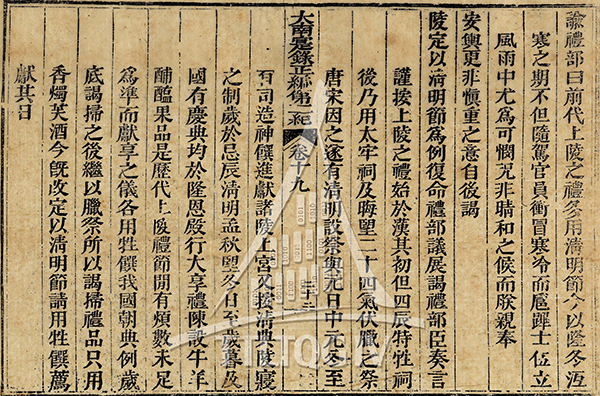 諭禮部曰前代上陵之禮多用清明節今以隆冬沍
寒之期不但隨駕官員衝冒寒冷而扈蹕士伍立
風雨中尤為可憫况非晴和之候而朕親奉
安輿更非慎重之意自後謁
陵定以清明節為例復命禮部議展謁禮部臣奏言
謹按上陵之禮始於漢其初但四辰特牲祠
後乃用太牢祠及晦望二十四氣伏臘之祭
唐宋因之遂有清明設祭與元日中元冬至
大南寔錄正編第二紀 卷十九
有司造神饌進獻諸陵上宮又按清典陵寢
之制歲於忌辰清明孟秋望冬日至歲暮及
國有慶典均於隆恩殿行大享禮陳設牛羊
酺醢果品是歷代上陵禮節間有煩數未足
為準而獻享之儀各用牲饌我國朝典例歲
底謁掃之後繼以臘祭所以謁掃禮品只用
香燭芙酒今旣改定以清明節請用牲饌薦
獻其日